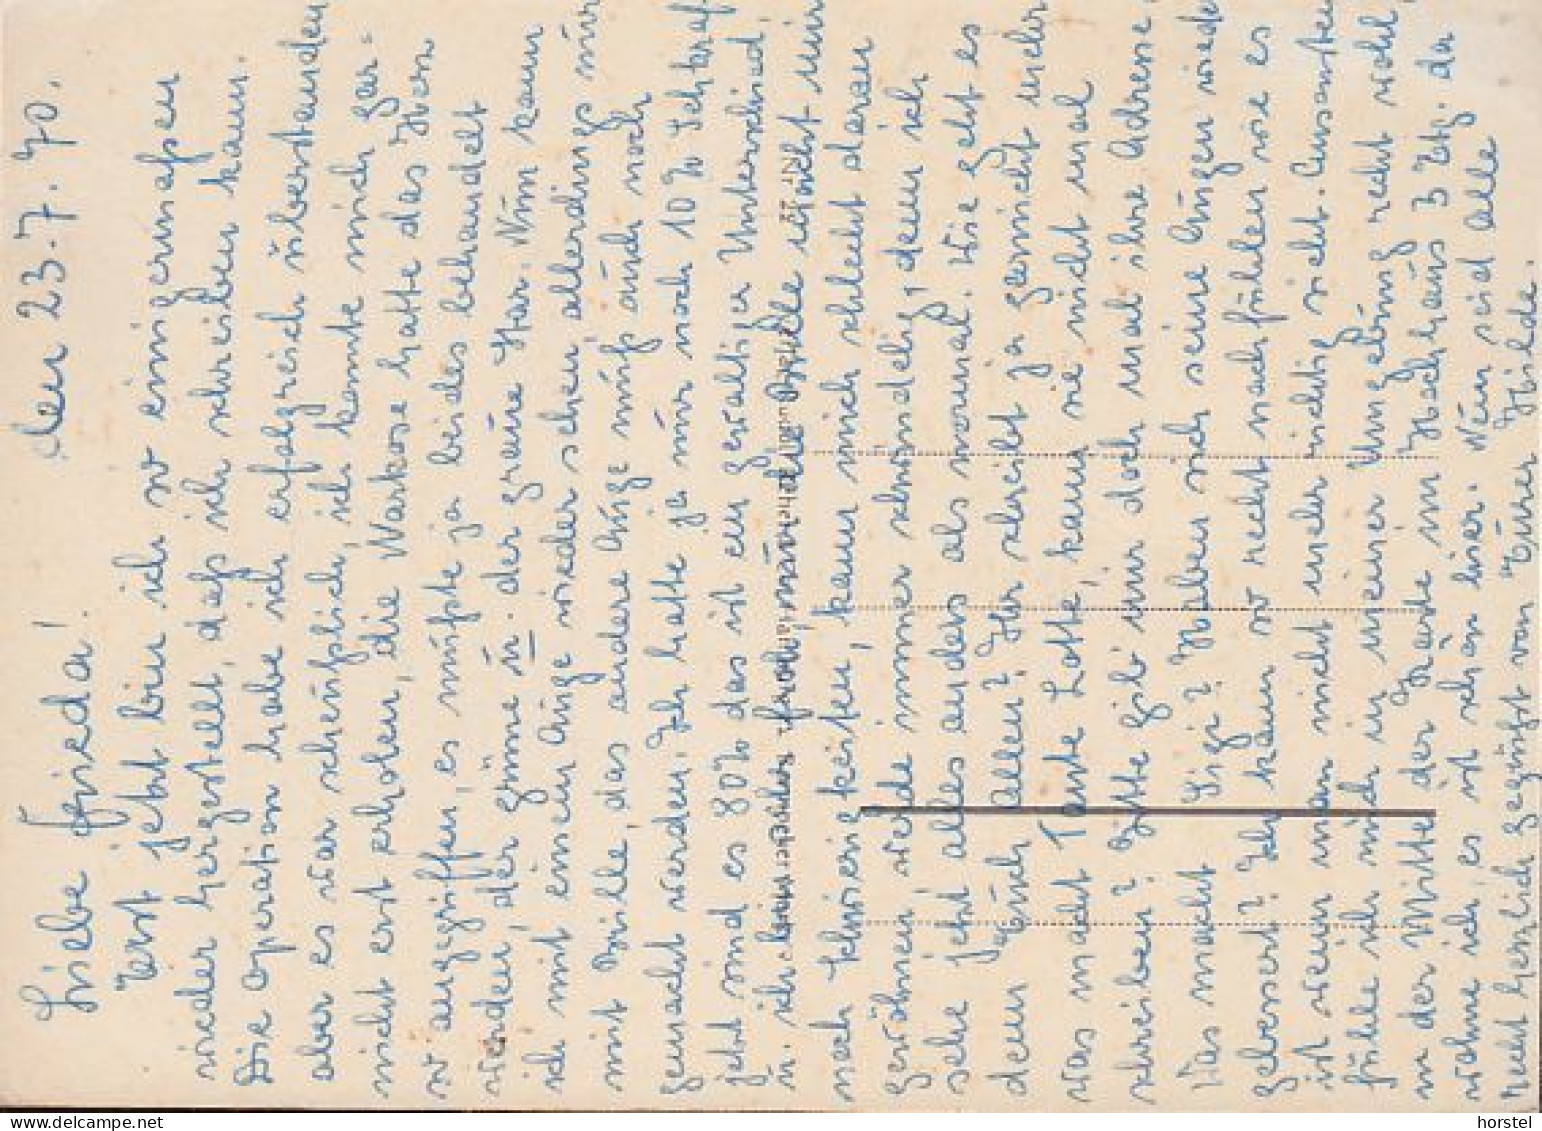 den 23.7.70.
Liebe Frieda!
Erst jetzt bin ich so einigermaßen
wieder hergestellt, daß ich schreiben kann.
Die Operation habe ich erfolgreich überstanden
aber es war scheußlich, ich konnte mich gar-
nicht erst erholen, die Narkose hatte das Herz
so angegriffen, es mußte ja beides behandelt
werden, der grüne ü. der graue Star. Nün kann
ich mit einem Aüge wieder sehen, allerdings nür
mit Brille, das andere Aüge müß aüch noch
gemacht werden. Ich hatte ja nür noch 10% Sehkraft
jetzt sind es 80% das ist ein gewaltiger Unterschied,
ü. ich bin froh, die Brille macht mir
noch Schwierigkeiten, kann mich schlecht daran
gewöhnen, werde immer schwindelig, denn ich
sehe jetzt alles anders als normal. Wie geht es
denn Eüch allen? Ihr schreibt ja garnicht mehr
was macht Tante Lotte, kann sie nicht mal
schreiben? Bitte gib mir doch mal ihre Adresse.
Was macht Sigi? Haben sich seine Aügen wieder
gebessert? Ich kann so recht nachfühlen wie es
ist wenn man nicht mehr richtig sieht. Ansonsten
fühle ich mich in meiner Umgebüng recht wohl,
in der Mitte der Heide im Hochhaüs 3 Etg. da
wohne ich, es ist schön hier. Nün seid alle
recht herzlich gegrüßt von Eürer Hilde.
horstel
© www.delcampe.net